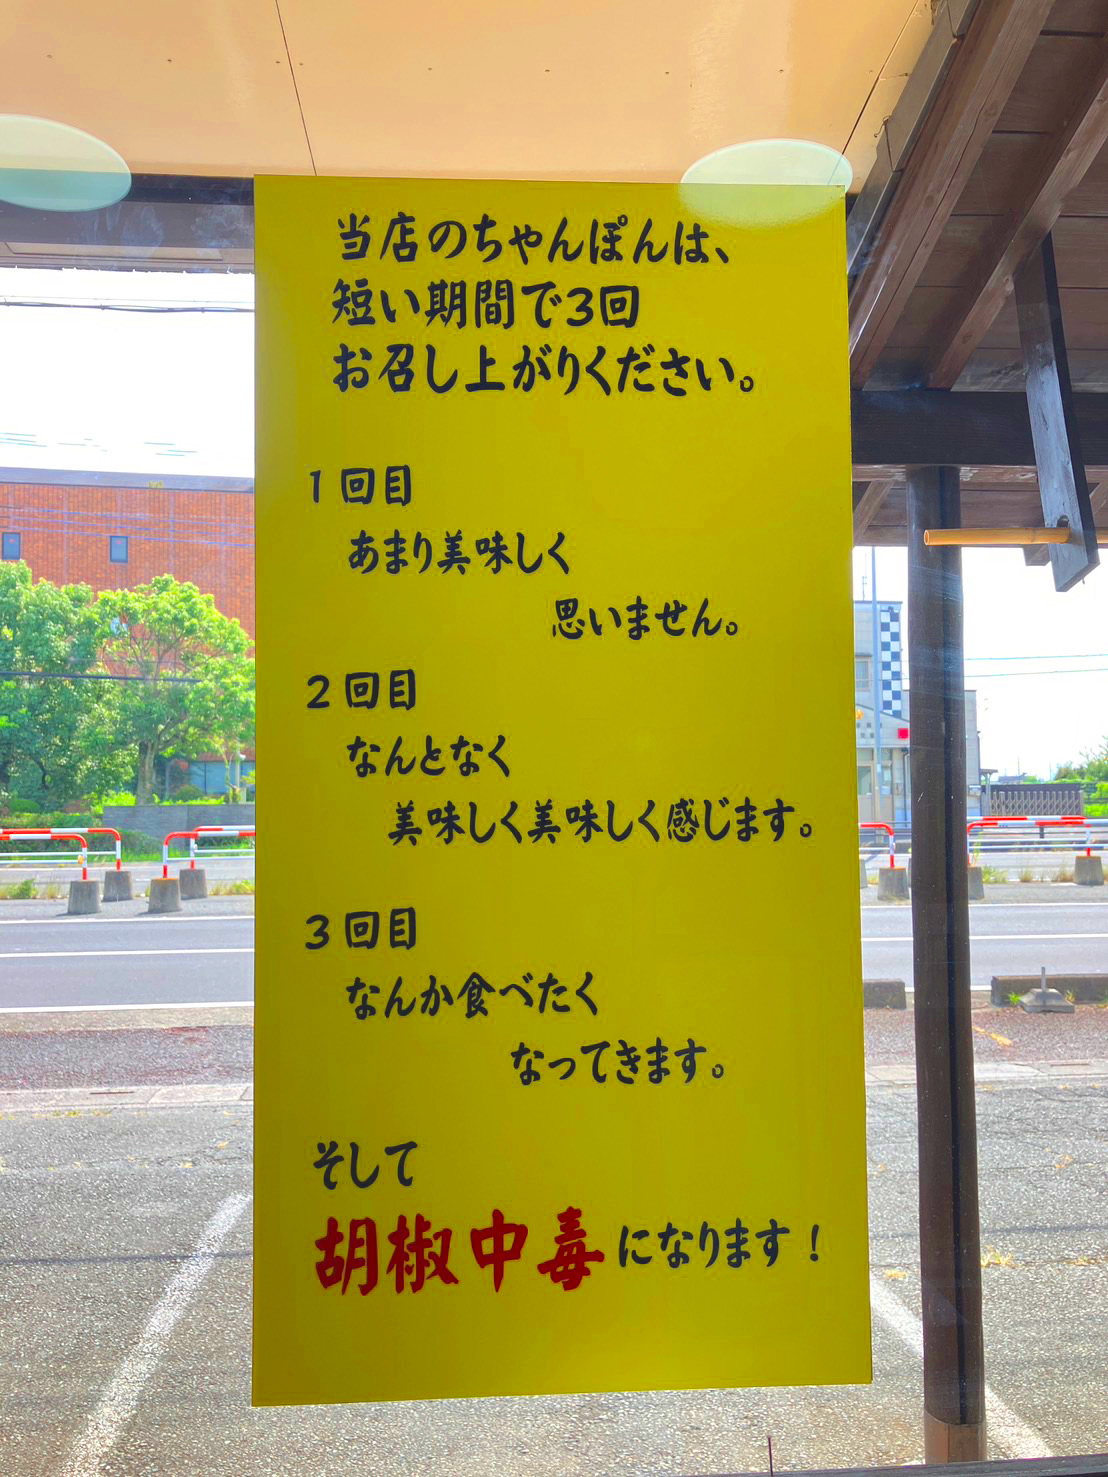 当店のちゃんぽんは、
短い期間で3回
お召し上がりください。
1回目
あまり美味しく
思いません。
2回目
なんとなく
美味しく美味しく感じます。
3回目
なんか食べたく
なってきます。
そして
胡椒中毒になります！